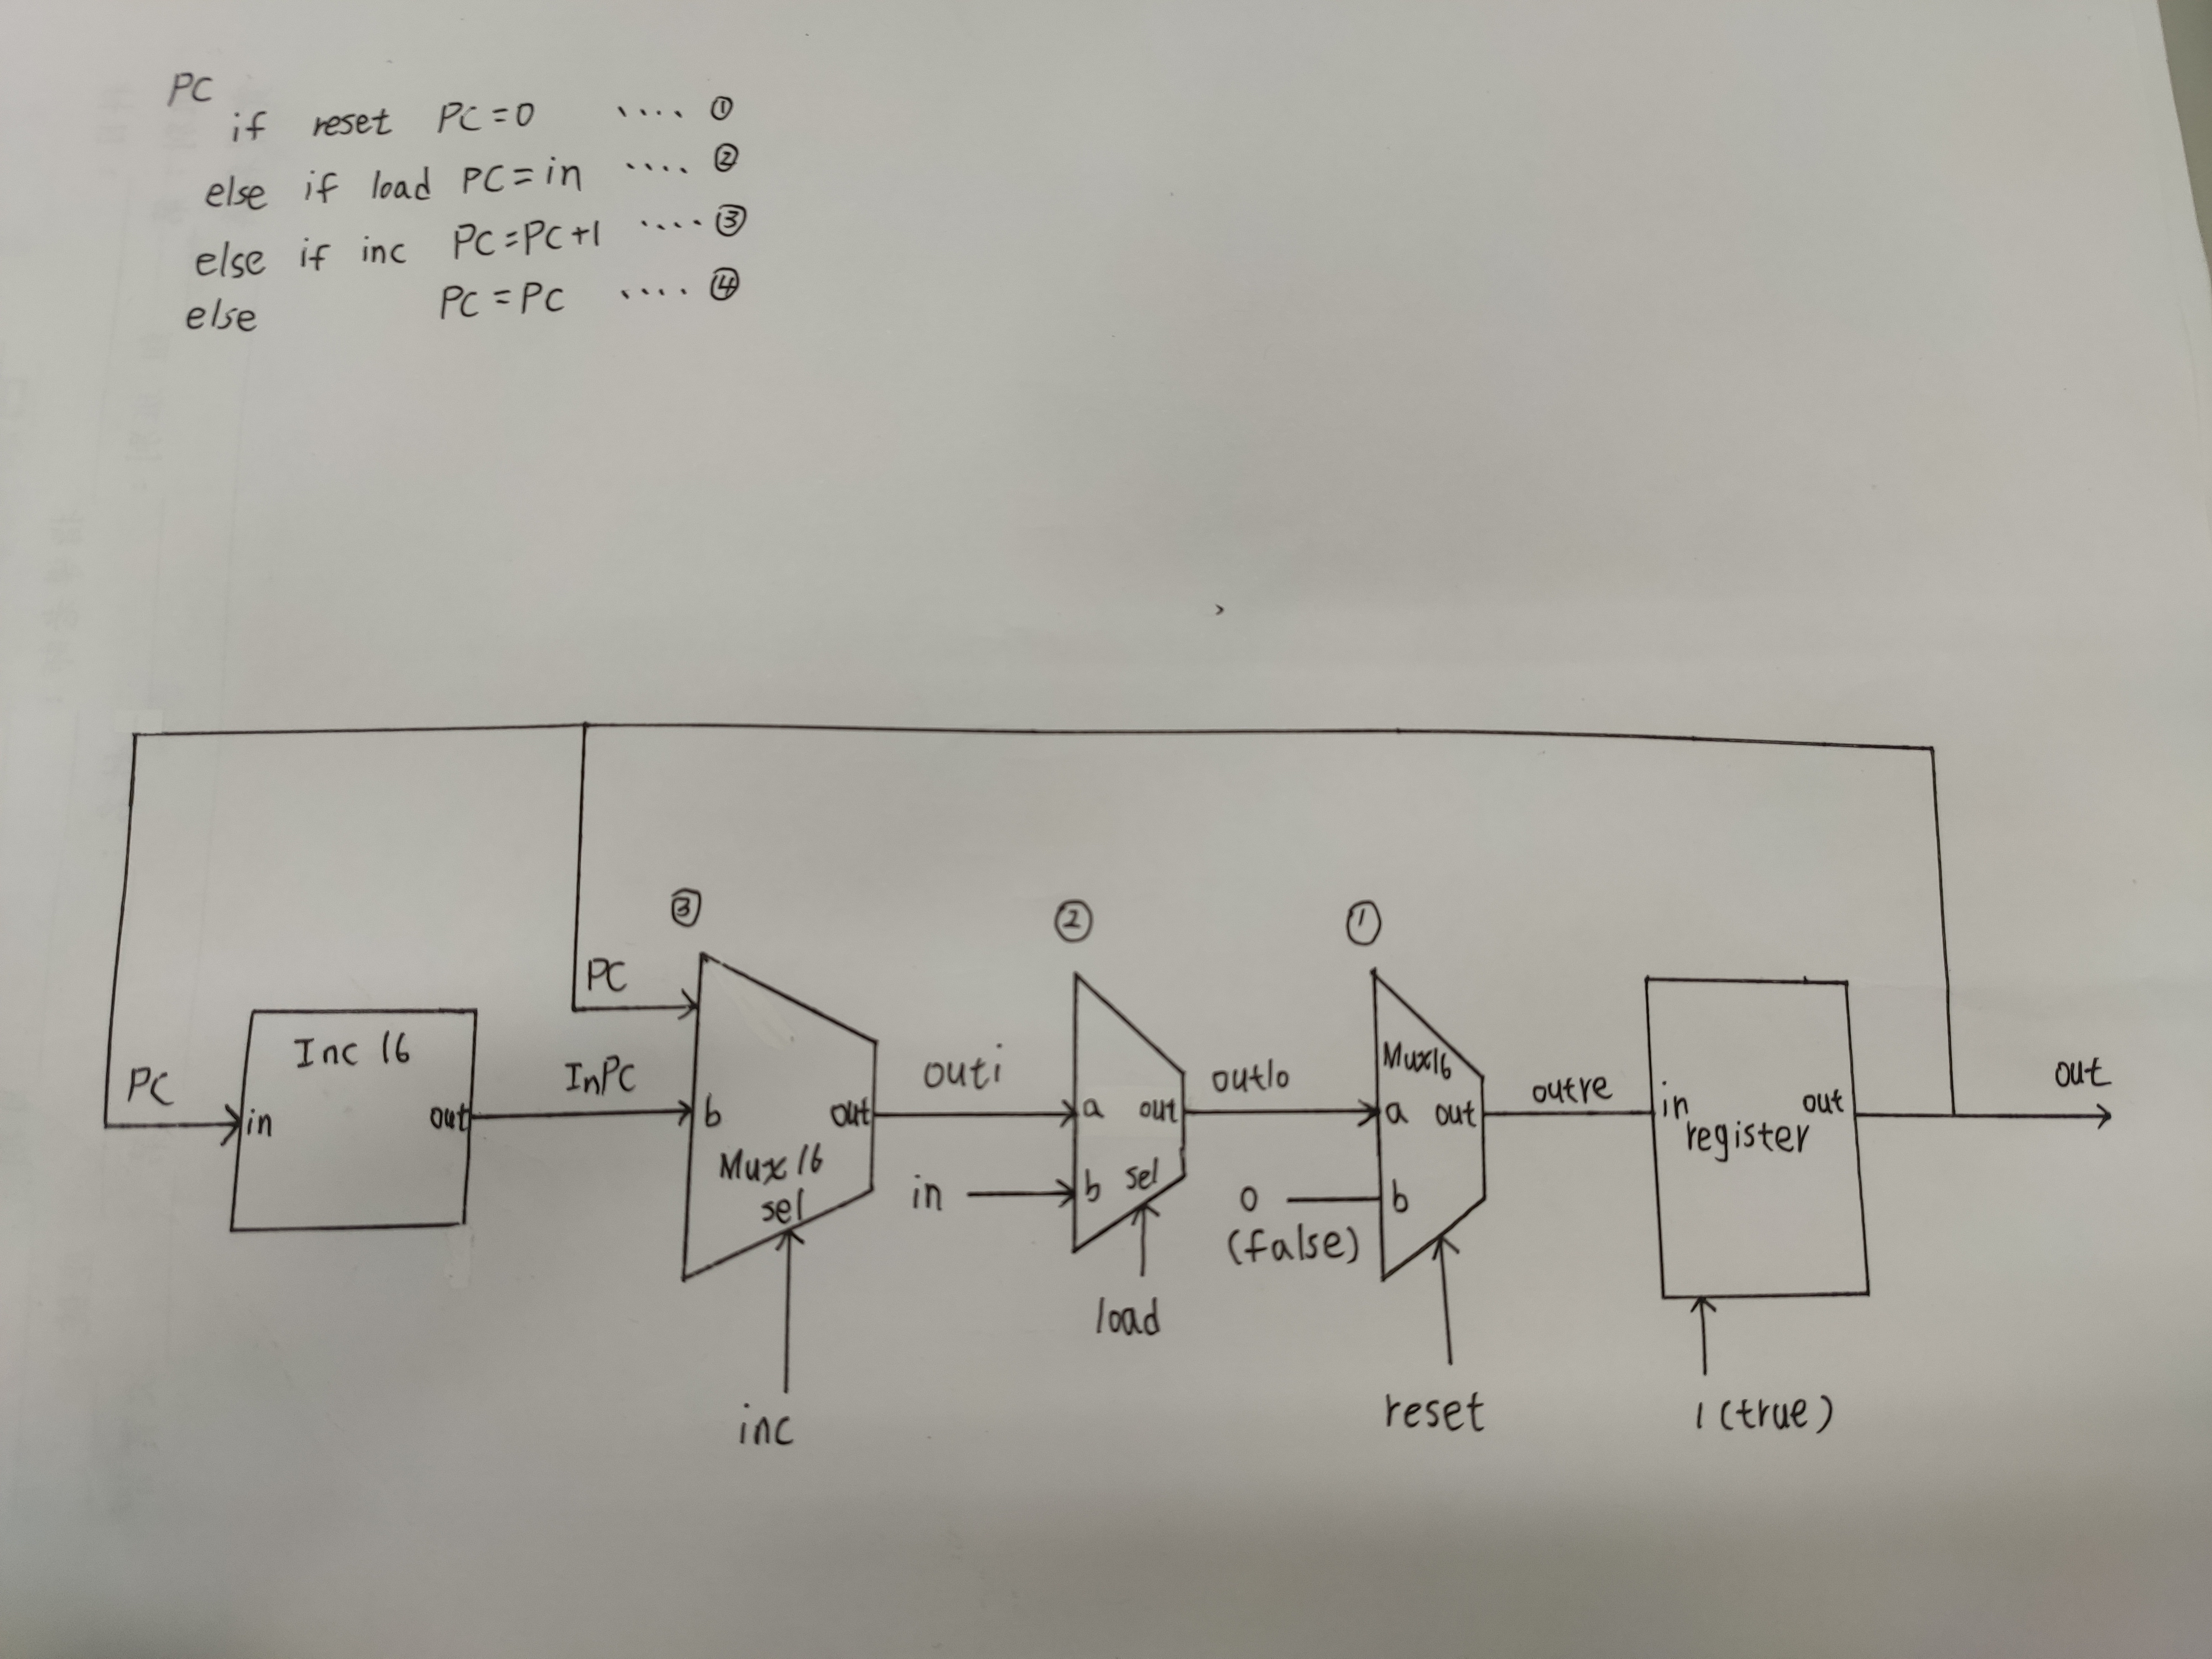 PC
if reset PC=0 .... ①
else if load PC=in .... ②
else if inc PC=PC+1 .... ③
else PC=PC .... ④
③
②
①
PC
PC
Inc 16
in
out
InPC
b
out
Mux 16
sel
inc
outi
in
a
out
b
sel
load
outlo
0
(false)
Mux16
a
out
b
reset
outre
in
out
register
1 (true)
out